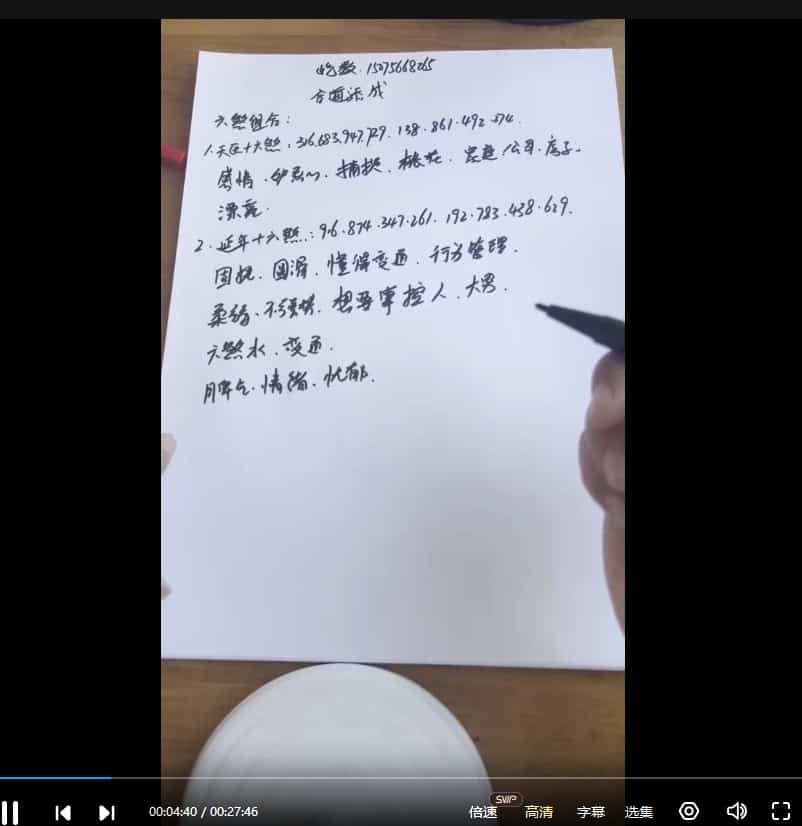 吃数.15075668065
六煞组合:
1.天医+六煞:316.683.947.729.138.861.492.574.
感情.桃花.家庭/公司.房子.
漂亮.
2.延年+六煞:916.874.347.261.192.783.438.629.
固执.圆滑.懂得变通.行为管理.
柔络.想要掌控人.大男.
六煞水.变通.
脾气.情绪.忧郁.
00:04:40 / 00:27:46
SVIP
倍速 高清 字幕 选集